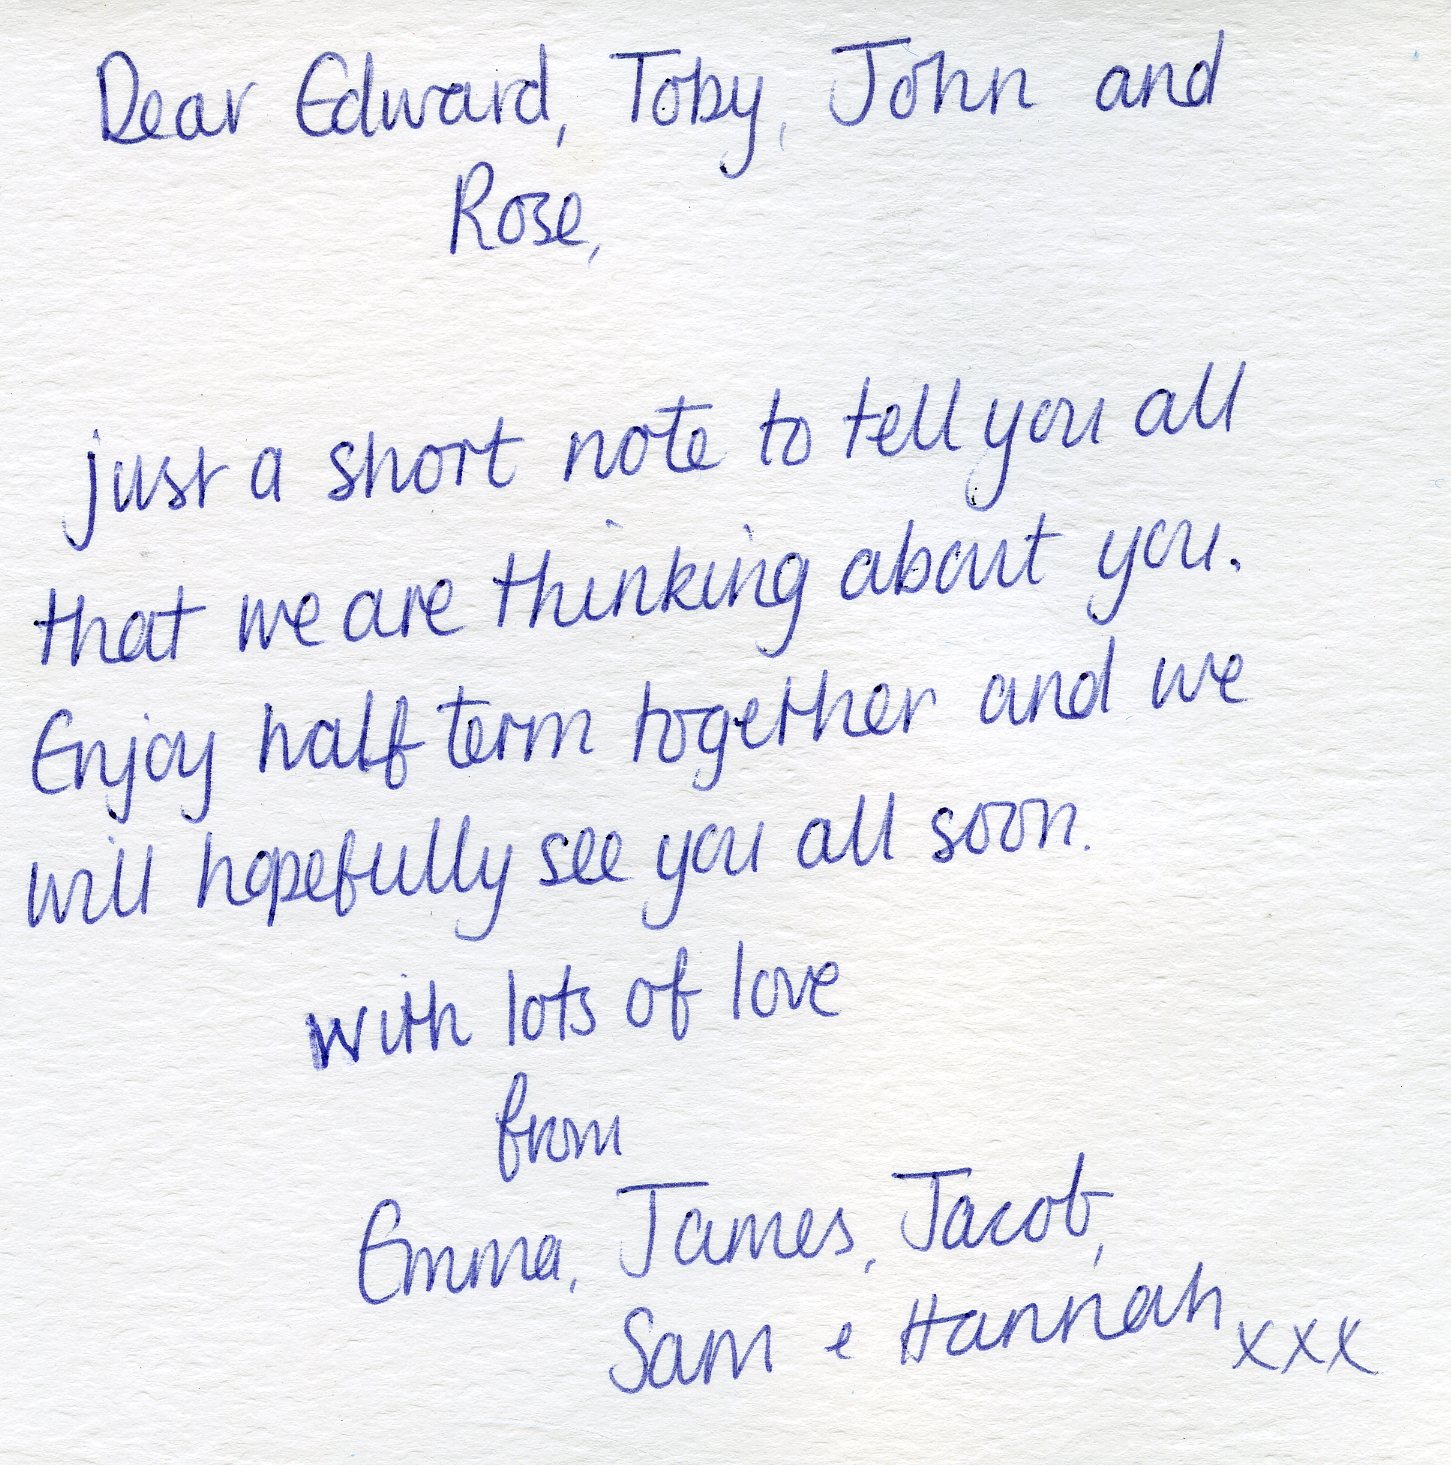 Dear Edward, Toby, John and
Rose,
just a short note to tell you all
that we are thinking about you.
Enjoy half term together and we
will hopefully see you all soon.
with lots of love
from
Emma, James, Jacob,
Sam e Hannah xxx